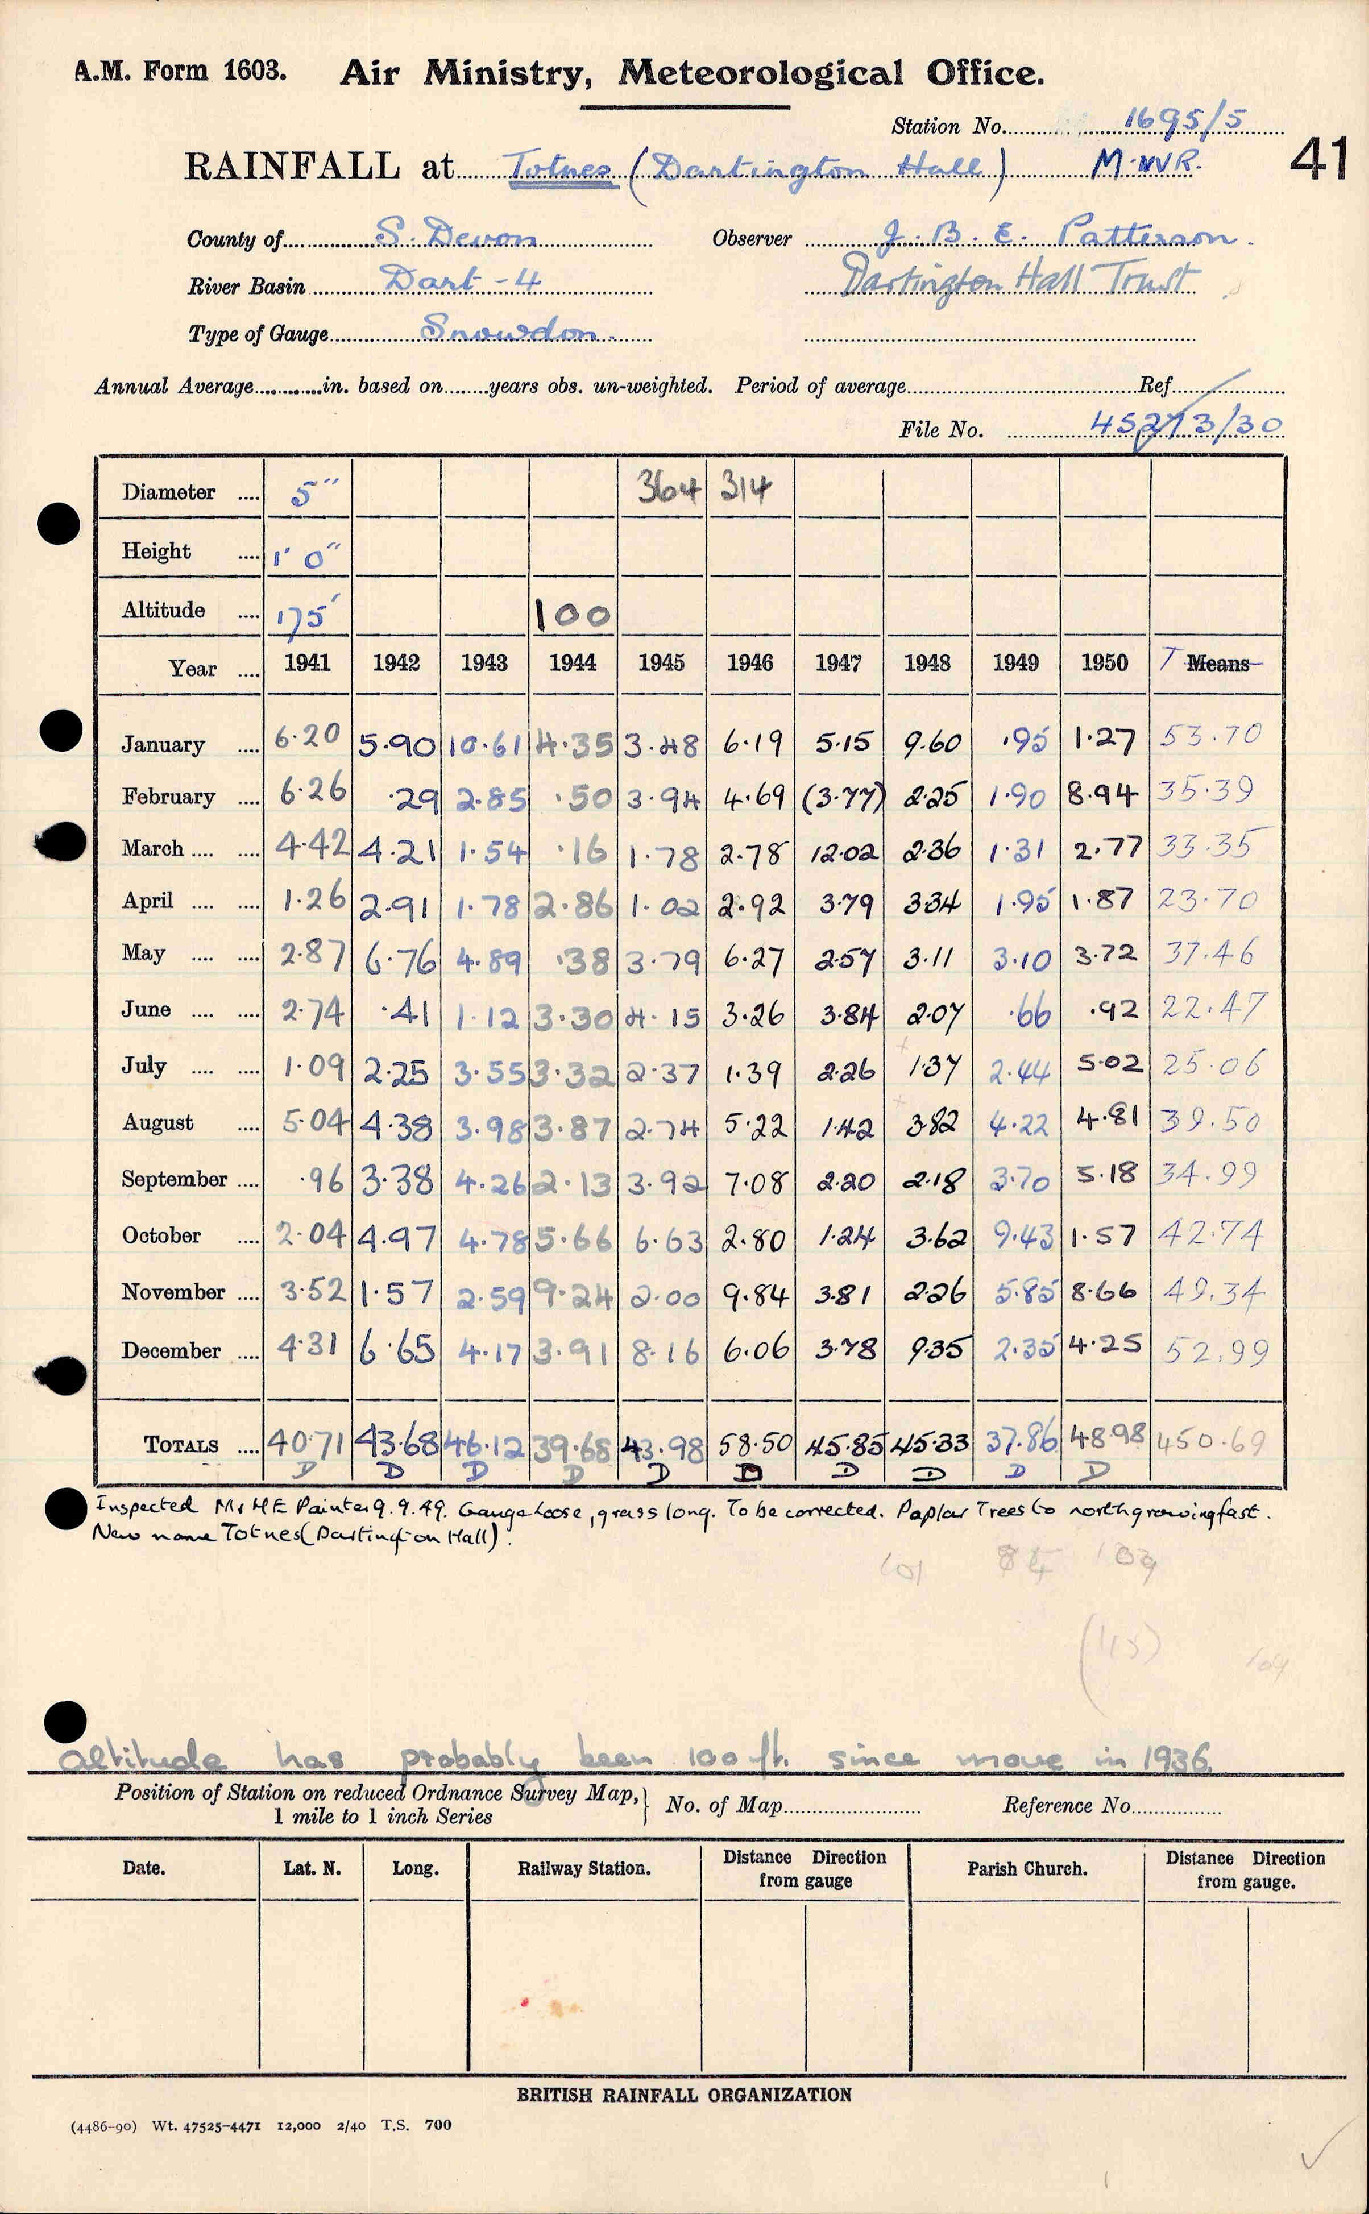 A.M. Form 1603. Air Ministry, Meteorological Office.
Station No. 1695/5
RAINFALL at Totnes (Dartington Hall) 41
County of S. Devon Observer J. B. E. Patterson.
River Basin Dart - 4 Dartington Hall Trust
Type of Gauge Snowdon.
Annual Average in. based on years obs. un-weighted. Period of average Ref
File No. 45273/30
Diameter .... 5" 364 314
Height .... 1' 0"
Altitude .... 175' 100
Year .... 1941 1942 1943 1944 1945 1946 1947 1948 1949 1950 T Means
January .... 6.20 5.90 10.61 4.35 3.48 6.19 5.15 9.60 .95 1.27 53.70
February .... 6.26 .29 2.85 .50 3.94 4.69 (3.77) 2.25 1.90 8.94 35.39
March .... .... 4.42 4.21 1.54 .16 1.78 2.78 12.02 2.36 1.31 2.77 33.35
April .... .... 1.26 2.91 1.78 2.86 1.02 2.92 3.79 3.34 1.95 1.87 23.70
May .... .... 2.87 6.76 4.89 .38 3.79 6.27 2.57 3.11 3.10 3.72 37.46
June .... .... 2.74 .41 1.12 3.30 4.15 3.26 3.84 2.07 .66 .92 22.47
July .... .... 1.09 2.25 3.55 3.32 2.37 1.39 2.26 1.37 2.44 5.02 25.06
August .... 5.04 4.38 3.98 3.87 2.74 5.22 1.42 3.82 4.22 4.81 39.50
September .... .96 3.38 4.26 2.13 3.92 7.08 2.20 2.18 3.70 5.18 34.99
October .... 2.04 4.97 4.78 5.66 6.63 2.80 1.24 3.62 9.43 1.57 42.74
November .... 3.52 1.57 2.59 9.24 2.00 9.84 3.81 2.26 5.85 8.66 49.34
December .... 4.31 6.65 4.17 3.91 8.16 6.06 3.78 9.35 2.35 4.25 52.99
TOTALS .... 40.71 43.68 46.12 39.68 43.98 58.50 45.85 45.33 37.86 48.98 450.69
D D D D D D D D D D
Inspected Mr H E Painter 9.9.49. Gauge Loose, grass long. To be corrected. Poplar Trees to north growing fast.
New name Totnes (Dartington Hall).
101 84 109
(113)
109
altitude has probably been 100 ft. since move in 1936.
Position of Station on reduced Ordnance Survey Map, No. of Map Reference No.
1 mile to 1 inch Series
Date. Lat. N. Long. Railway Station. Distance Direction from gauge Parish Church. Distance Direction from gauge.
BRITISH RAINFALL ORGANIZATION
(4486-90) Wt. 47525-4471 12,000 2/40 T.S. 700